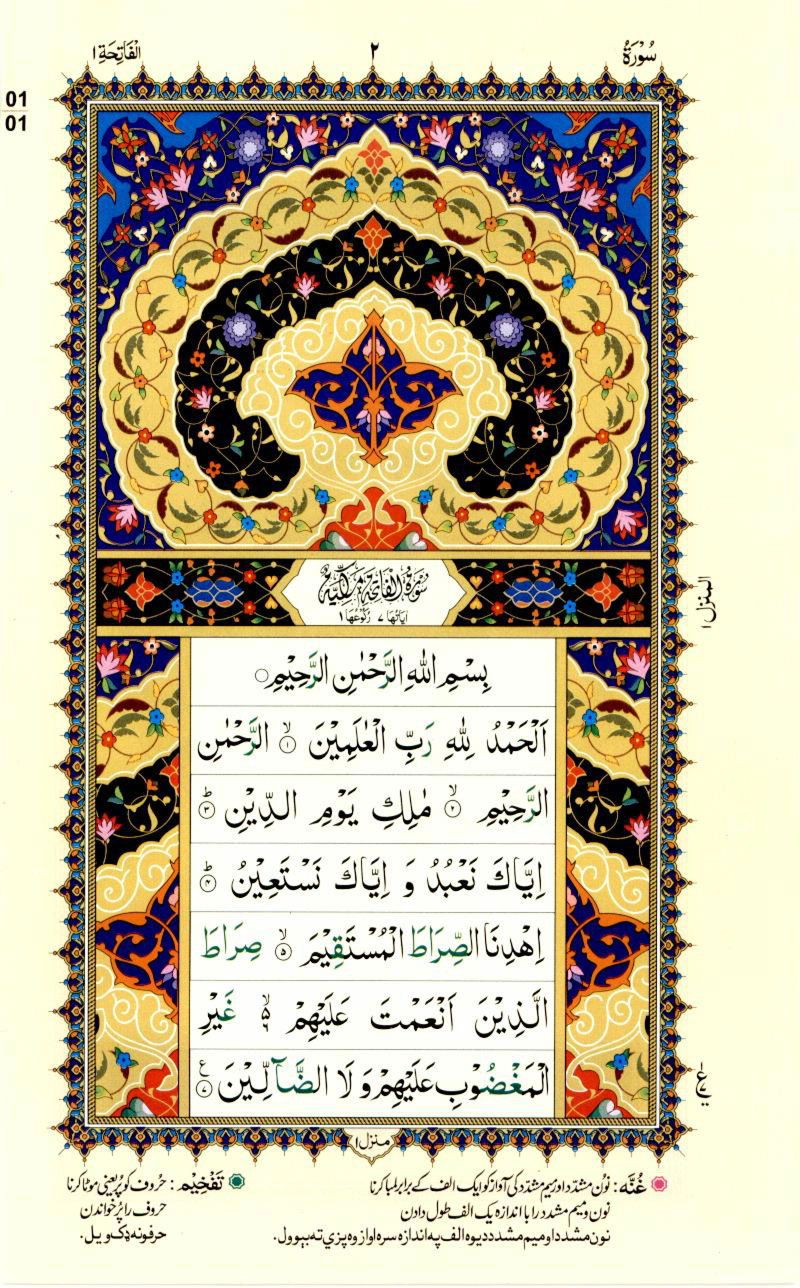 سُوْرَةُ ٢ اَلْفَاتِحَةِ ١
01
01
سُوْرَةُ الْفَاتِحَةِ مَكِّيَّةٌ
اٰيَاتُهَا ٧ رُكُوْعُهَا ١
بِسْمِ اللّٰهِ الرَّحْمٰنِ الرَّحِيْمِ ○
اَلْحَمْدُ لِلّٰهِ رَبِّ الْعٰلَمِيْنَ ۙ‏﴿۱﴾ الرَّحْمٰنِ
الرَّحِيْمِ ۙ‏﴿۲﴾ مٰلِكِ يَوْمِ الدِّيْنِ ؕ‏﴿۳﴾
اِيَّاكَ نَعْبُدُ وَ اِيَّاكَ نَسْتَعِيْنُ ؕ‏﴿۴﴾
اِهْدِنَا الصِّرَاطَ الْمُسْتَقِيْمَ ۙ‏﴿۵﴾ صِرَاطَ
الَّذِيْنَ اَنْعَمْتَ عَلَيْهِمْ ۙ۬ۙ۶ غَيْرِ
الْمَغْضُوْبِ عَلَيْهِمْ وَ لَا الضَّآلِّيْنَ ﴿۷﴾ ع
المنزل ١
منزل ١
غُنَّه: نون مشدد اور میم مشدد کی آواز کو ایک الف کے برابر لمبا کرنا
نون و میم مشدد را با اندازہ یک الف طول دادن
نون مشدد او میم مشدد دیوه الف په اندازه سره اواز وه پزي ته بېوول.
تَفْخِیْم: حروف کو پُر یعنی موٹا کرنا
حروف را پُر خواندن
حرفونه ډک ویل.